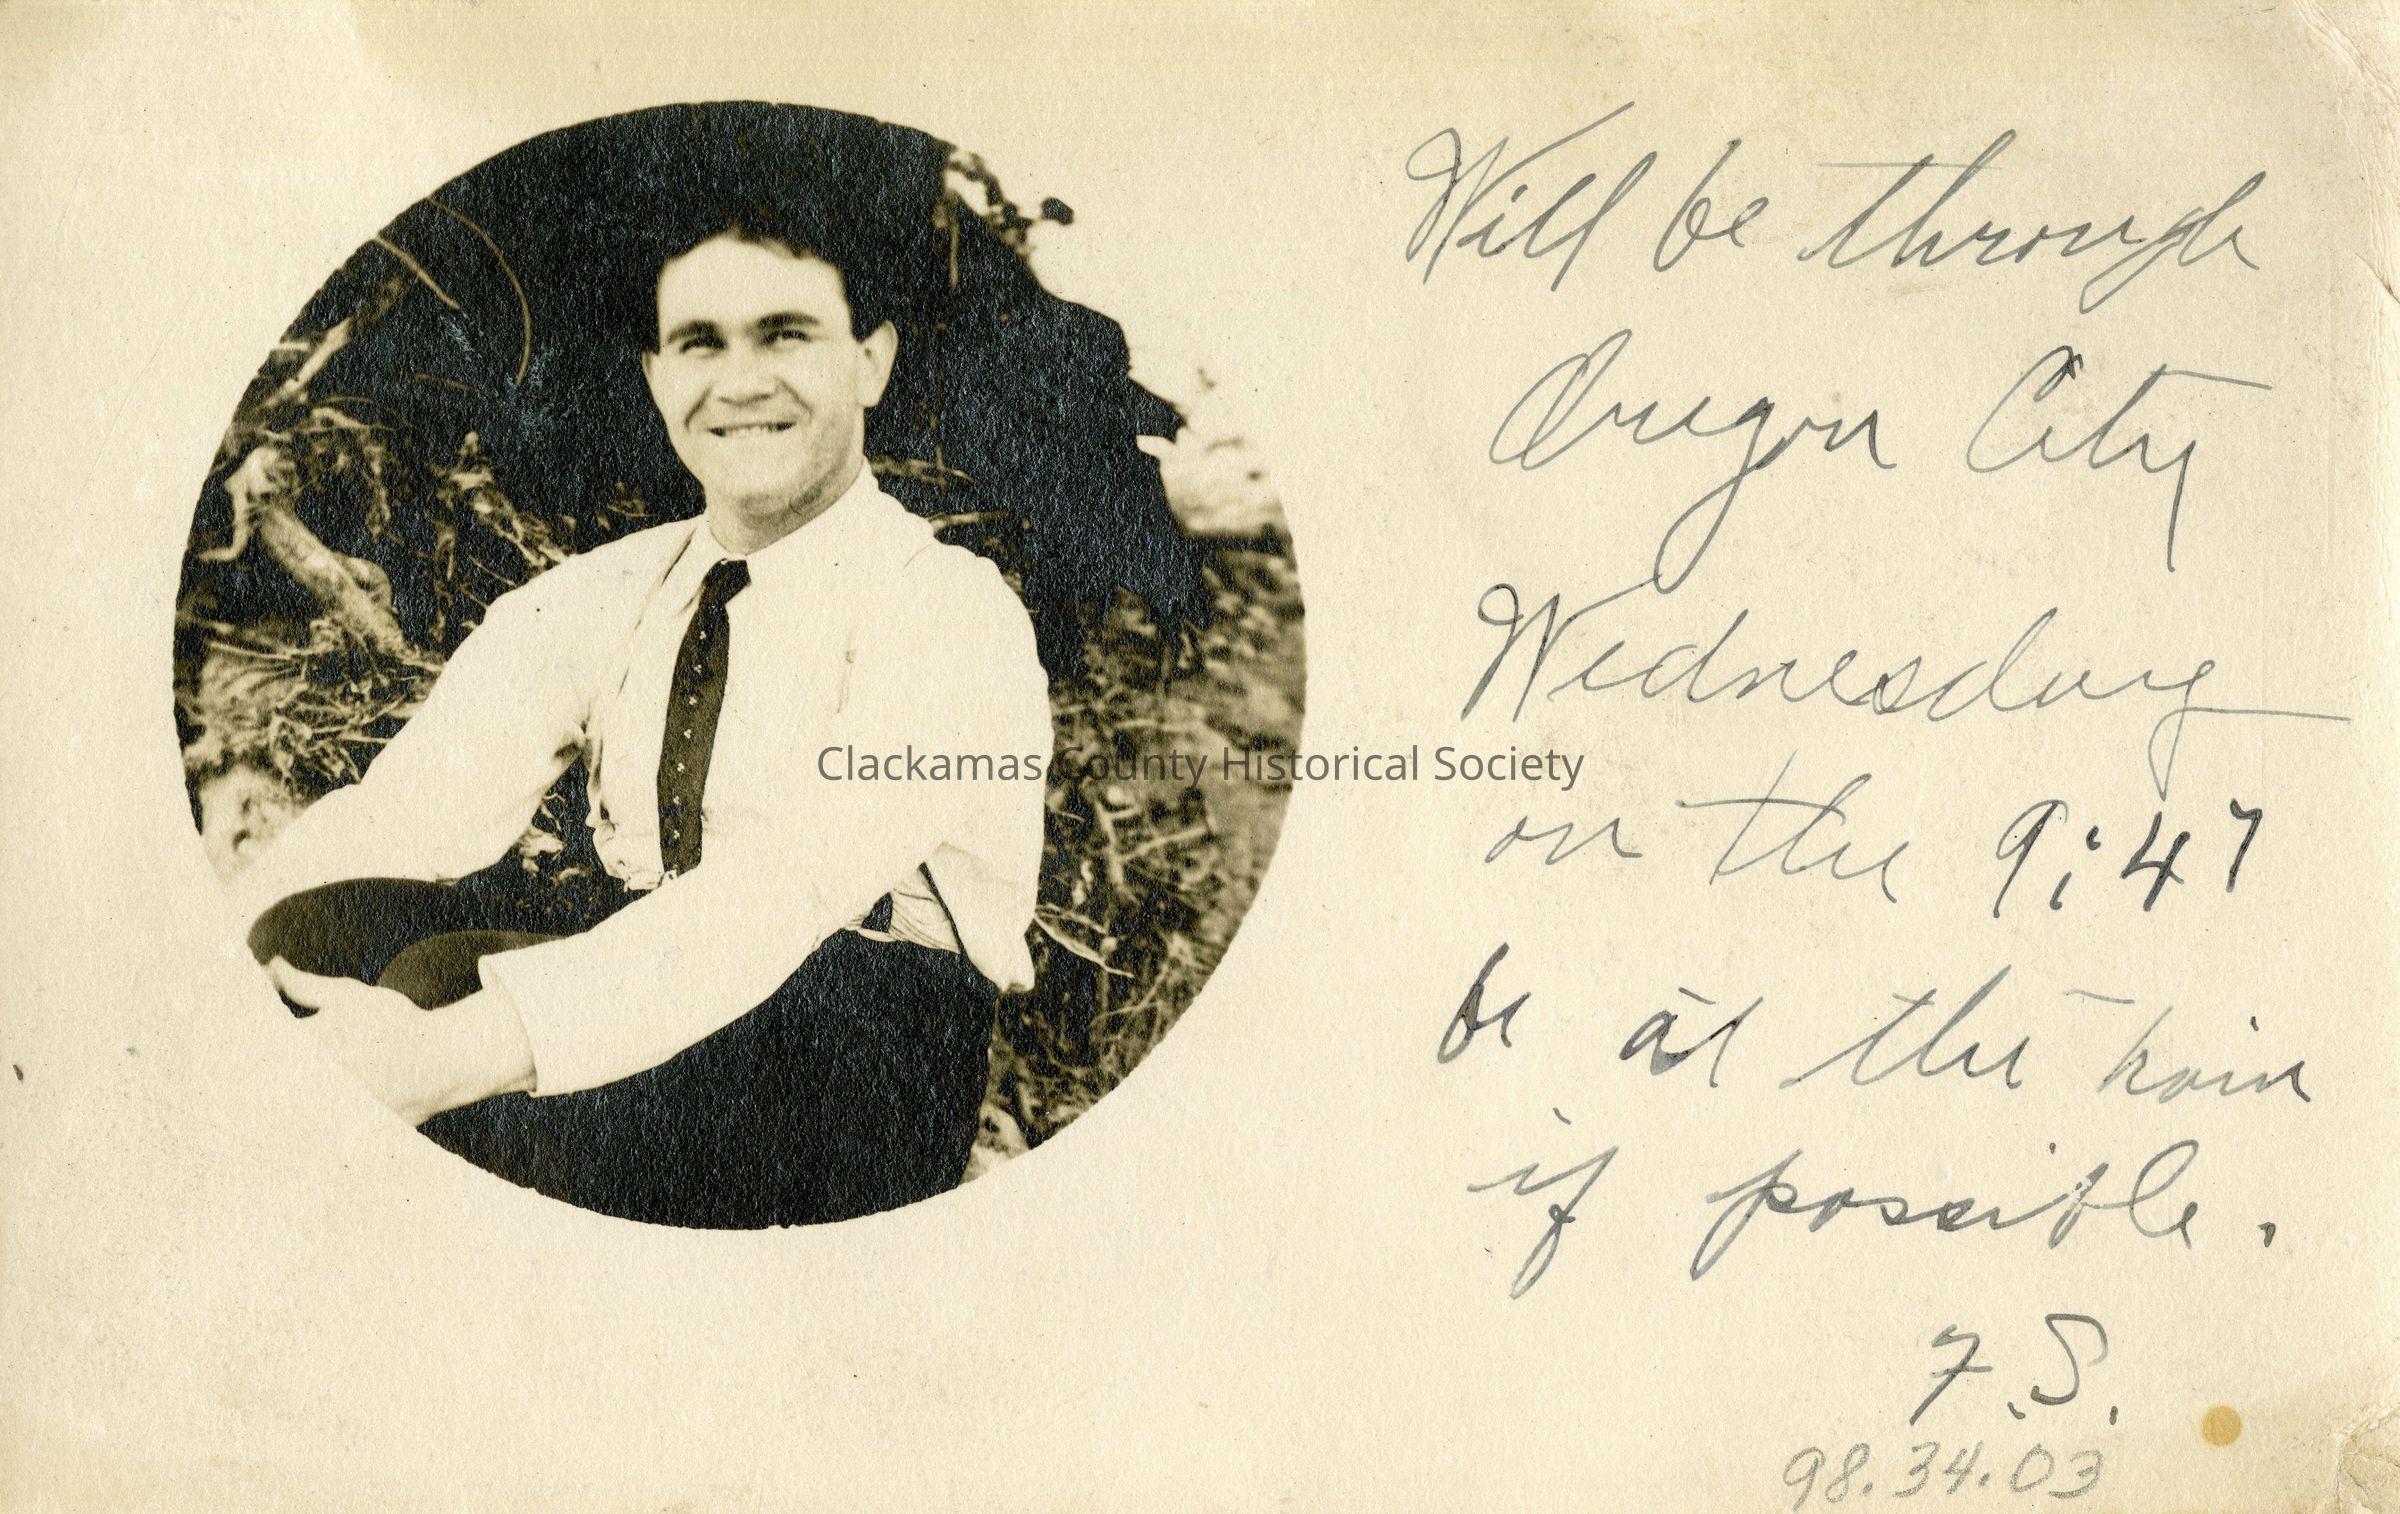 Will be through
Oregon City
Wednesday
on the 9:47
be at the train
if possible.
F.S.
98.34.03
Clackamas County Historical Society